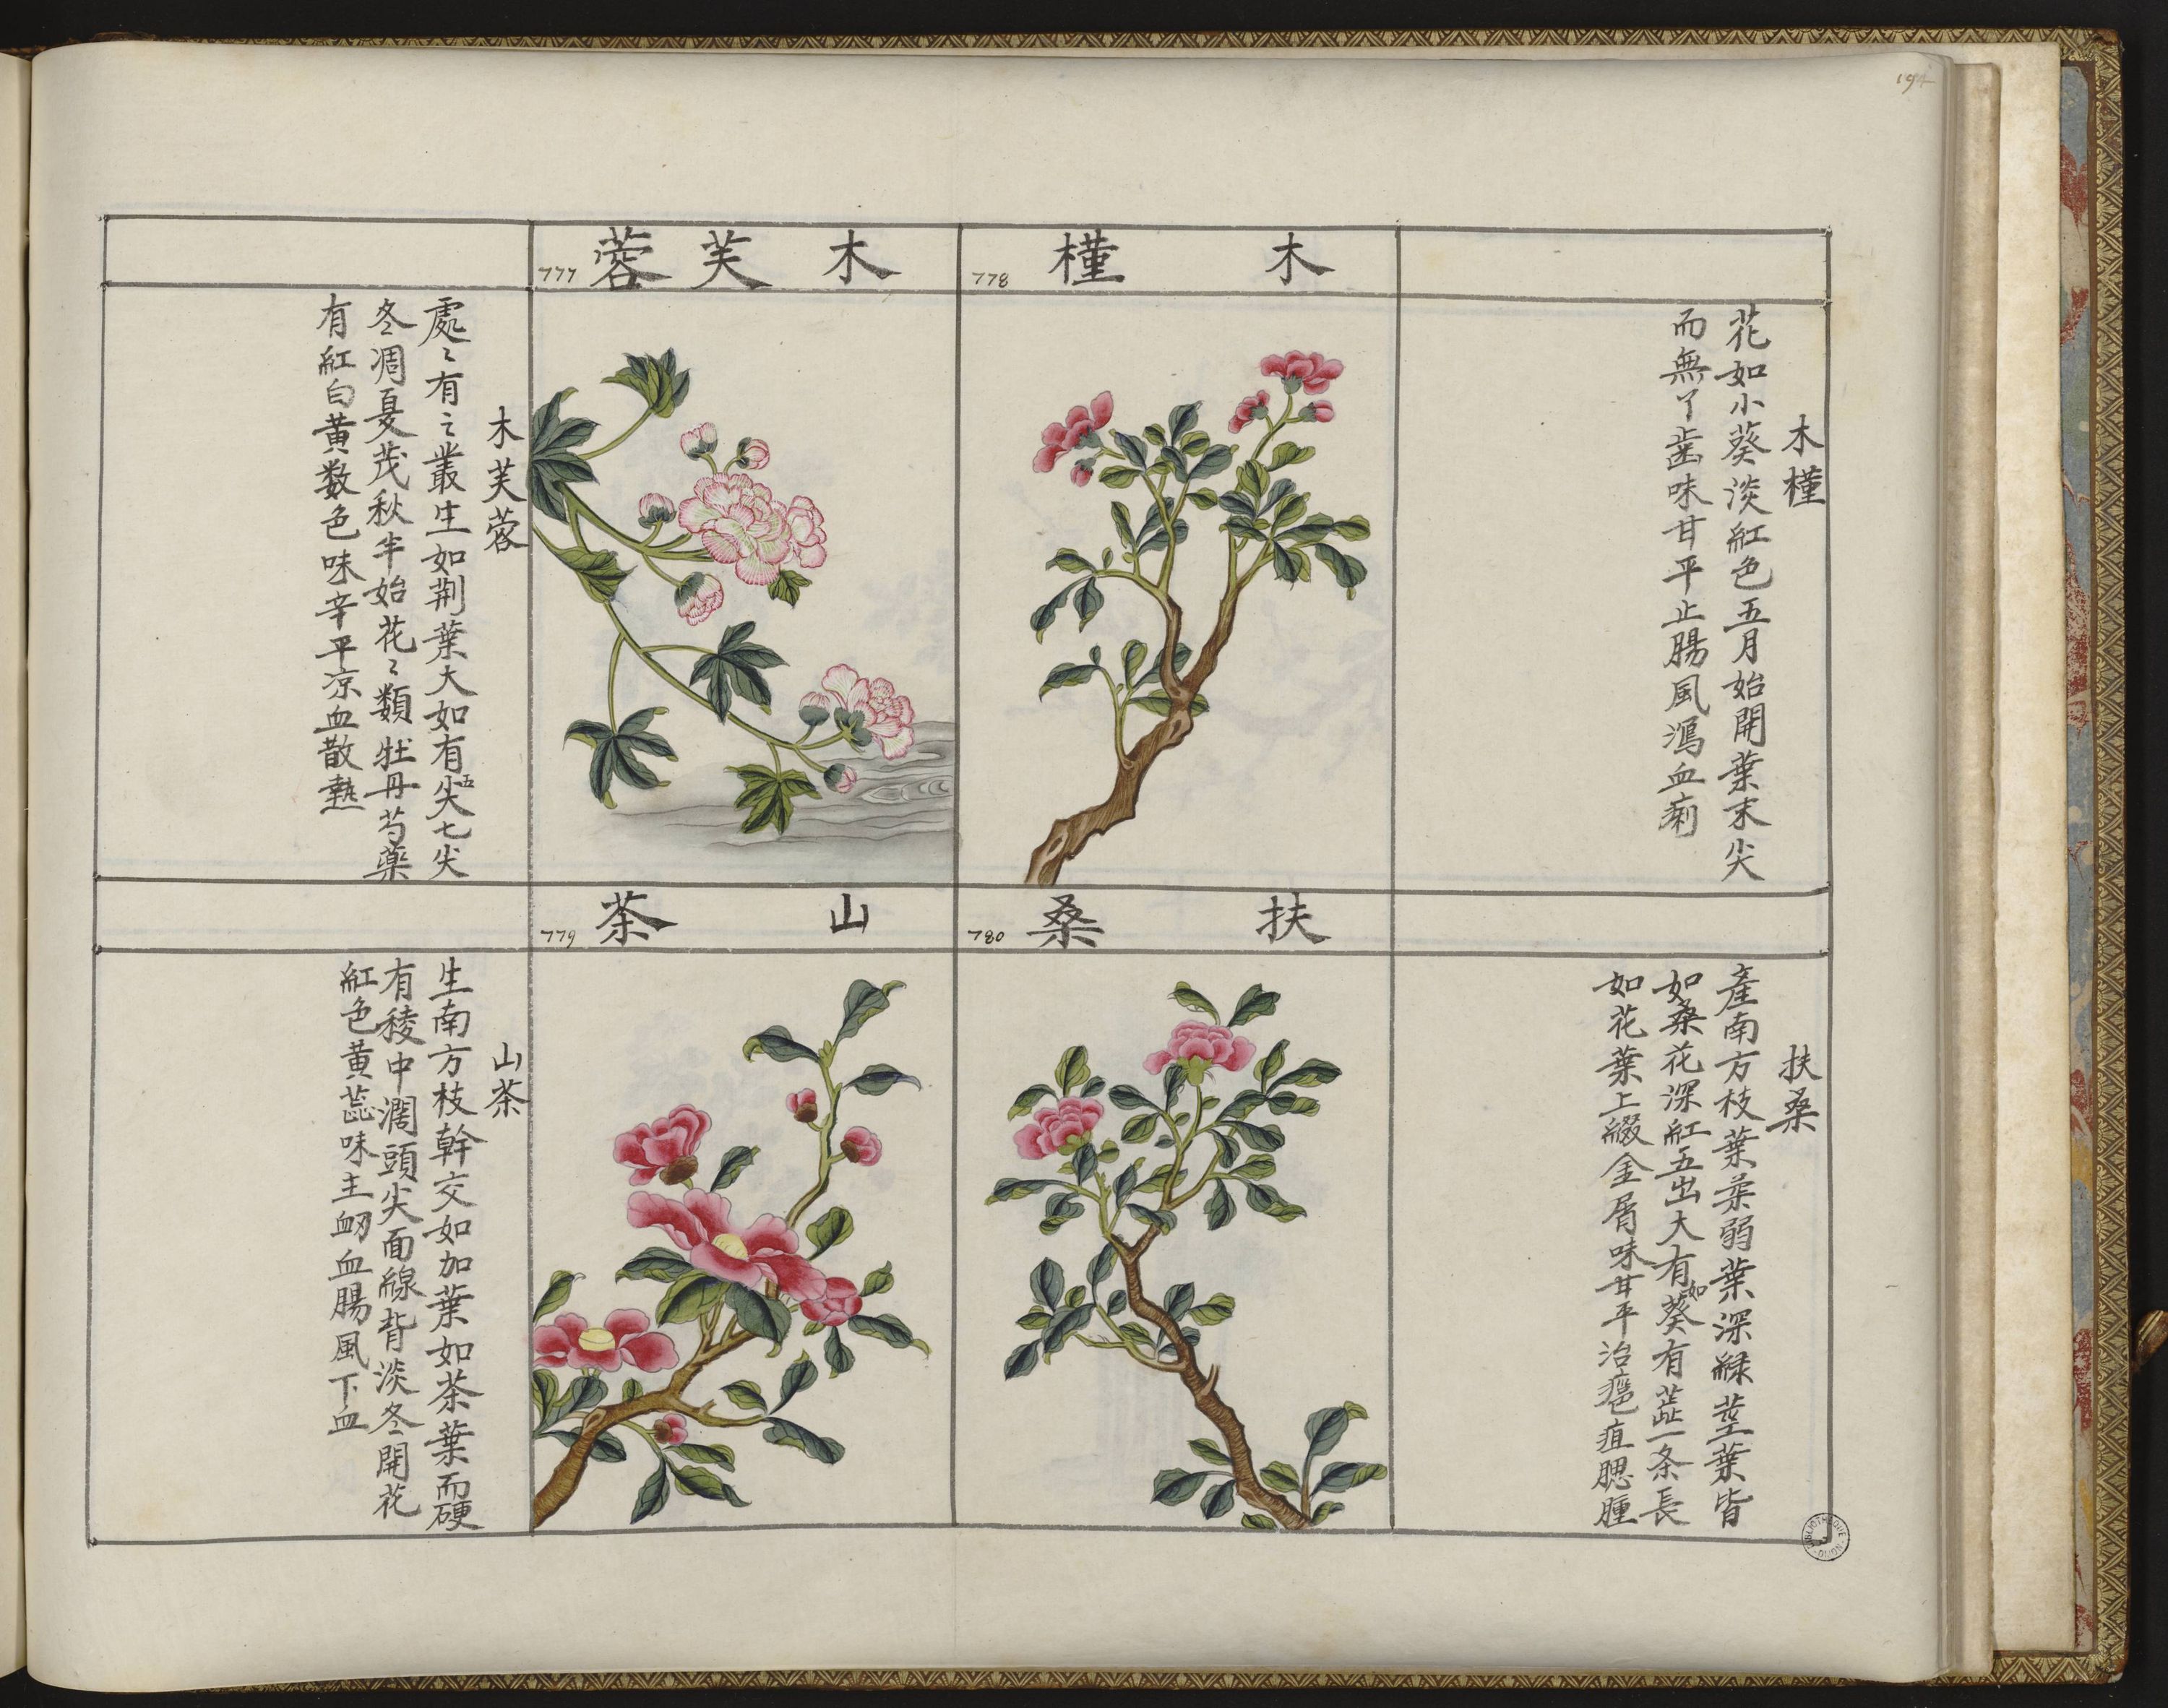 194
木槿
778
木槿
花如小葵淡紅色五月始開葉末尖
而無丫歯味甘平止腸風瀉血痢
木芙蓉
777
木芙蓉
處〻有之叢生如荆葉大如有五尖七尖
冬凋夏茂秋半始花〻類牡丹芍藥
有紅白黄数色味辛平凉血散熱
扶桑
780
扶桑
產南方枝葉柔弱葉深緑莖葉皆
如桑花深紅五出大有如葵有蕋一条長
如花葉上綴金屑味甘平治瘡疽腮腫
山茶
779
山茶
生南方枝幹交如加葉如茶葉而硬
有稜中濶頭尖面緑背淡冬開花
紅色黄蕊味主衂血腸風下血